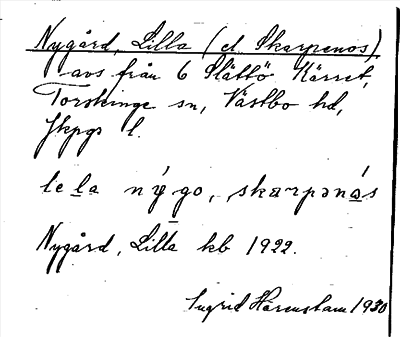 Nygård, Lilla (el. Skarpenos),
avs från 6 Slättö Kärret,
Torskinge sn, Västbo hd,
Jkpgs l.
lela nygo, skarpənas
Nygård, Lilla kb 1922.
Ingrid Härenstam 1930